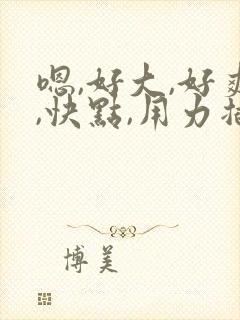 嗯,好大,好爽
,快點,用力插
博美